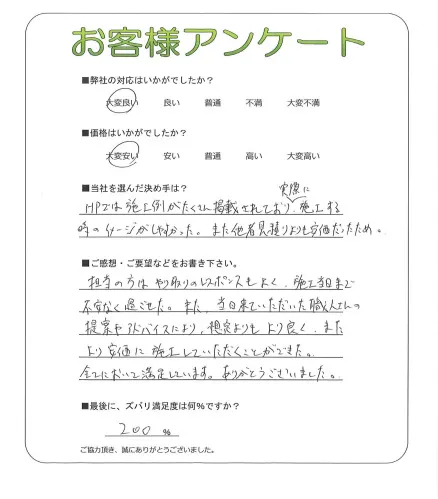 お客様アンケート
■弊社の対応はいかがでしたか?
大変良い 良い 普通 不満 大変不満
■価格はいかがでしたか?
大変安い 安い 普通 高い 大変高い
■当社を選んだ決め手は?
実際に
HPでは施工例がたくさん掲載されており、施工する
時のイメージがしやすかった。また他者見積りよりも安価だったため。
■ご感想・ご要望などをお書き下さい。
担当の方は やり取りのレスポンスもよく、施工当日まで
不安なく過ごせた。また、当日来ていただいた職人さんの
提案やアドバイスにより、想定よりも より良く、また
より安価に 施工していただくことができた。
全てにおいて満足しています。ありがとうございました。
■最後に、ズバリ満足度は何%ですか?
200 %
ご協力頂き、誠にありがとうございました。